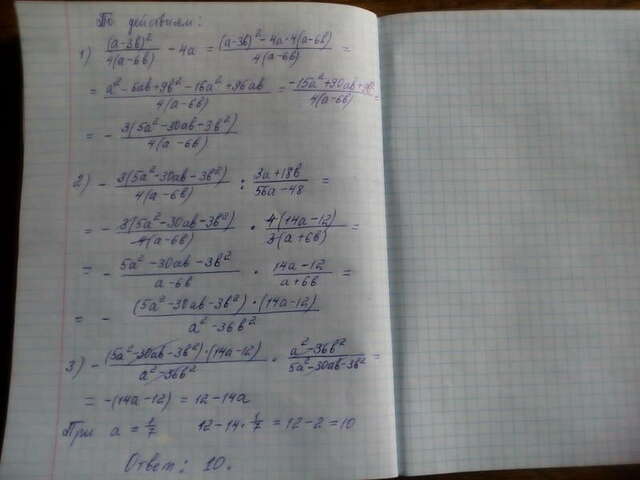 По действиям:
1) (a-3в)²/4(a-6в) - 4a = (a-3в)²-4a·4(a-6в)/4(a-6в) =
= a²-6aв+9в²-16a²+96aв/4(a-6в) = -15a²+90aв+9в²/4(a-6в) =
= - 3(5a²-30aв-3в²)/4(a-6в)
2) - 3(5a²-30aв-3в²)/4(a-6в) : 3a+18в/56a-48 =
= - 3(5a²-30aв-3в²)/4(a-6в) · 4(14a-12)/3(a+6в) =
= - 5a²-30aв-3в²/a-6в · 14a-12/a+6в =
= - (5a²-30aв-3в²)·(14a-12)/a²-36в²
3) - (5a²-30aв-3в²)·(14a-12)/a²-36в² · a²-36в²/5a²-30aв-3в² =
= -(14a-12) = 12-14a
При a = 1/7 12-14·1/7 = 12-2 = 10
Ответ: 10.